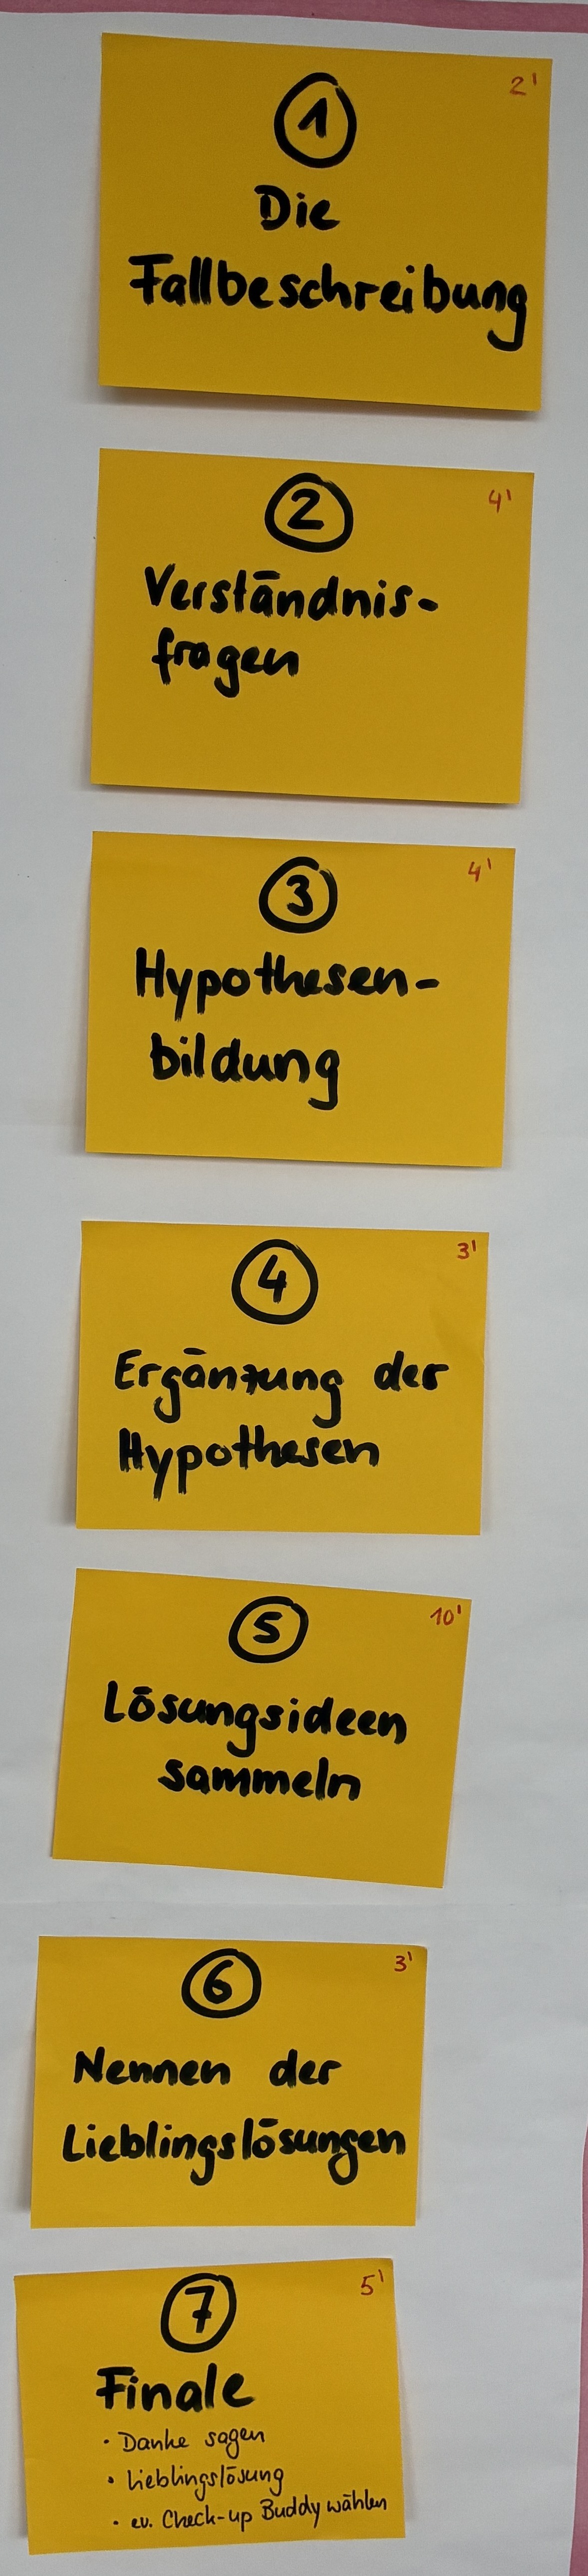 2'
1
Die
Fallbeschreibung
4'
2
Verständnis-
fragen
4'
3
Hypothesen-
bildung
3'
4
Ergänzung der
Hypothesen
10'
5
Lösungsideen
sammeln
3'
6
Nennen der
Lieblingslösungen
5'
7
Finale
• Danke sagen
• Lieblingslösung
• ev. Check-up Buddy wählen